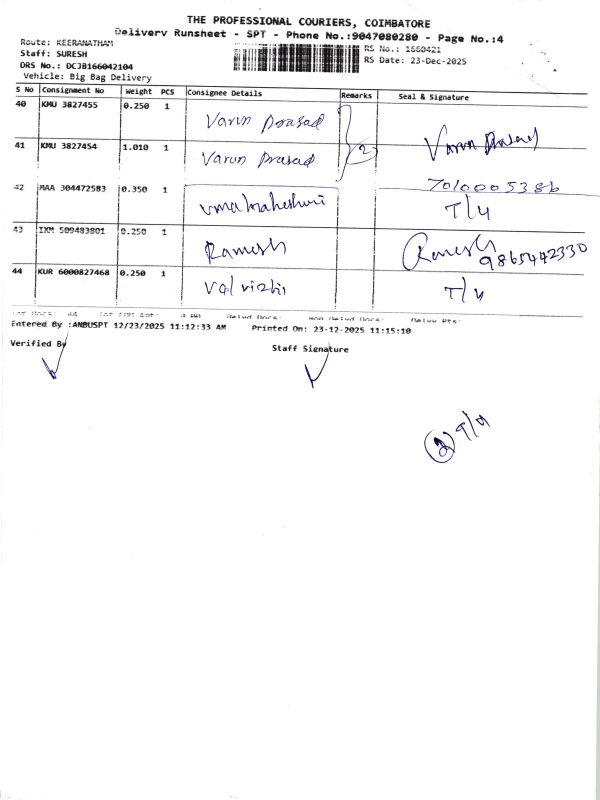 THE PROFESSIONAL COURIERS, COIMBATORE
Delivery Runsheet - SPT - Phone No.:9047080280 - Page No.:4
Route: KEERANATHAM
RS No.: 1660421
Staff: SURESH
RS Date: 23-Dec-2025
DRS No.: DCJB166042104
Vehicle: Big Bag Delivery
S No Consignment No Weight PCS Consignee Details Remarks Seal & Signature
40 KMU 3827455 0.250 1 Varun Prasad
41 KMU 3827454 1.010 1 Varun Prasad 2 Varun Prasad
7010005386
42 MAA 304472583 0.350 1 Umamaheshwri T/4
43 IXM 509483801 0.250 1 Ramesh Ramesh 9865442330
44 KUR 6000827468 0.250 1 Valvizhi T/4
Entered By :ANBUSPT 12/23/2025 11:12:33 AM Printed On: 23-12-2025 11:15:10
Verified By
Staff Signature
2 T/4